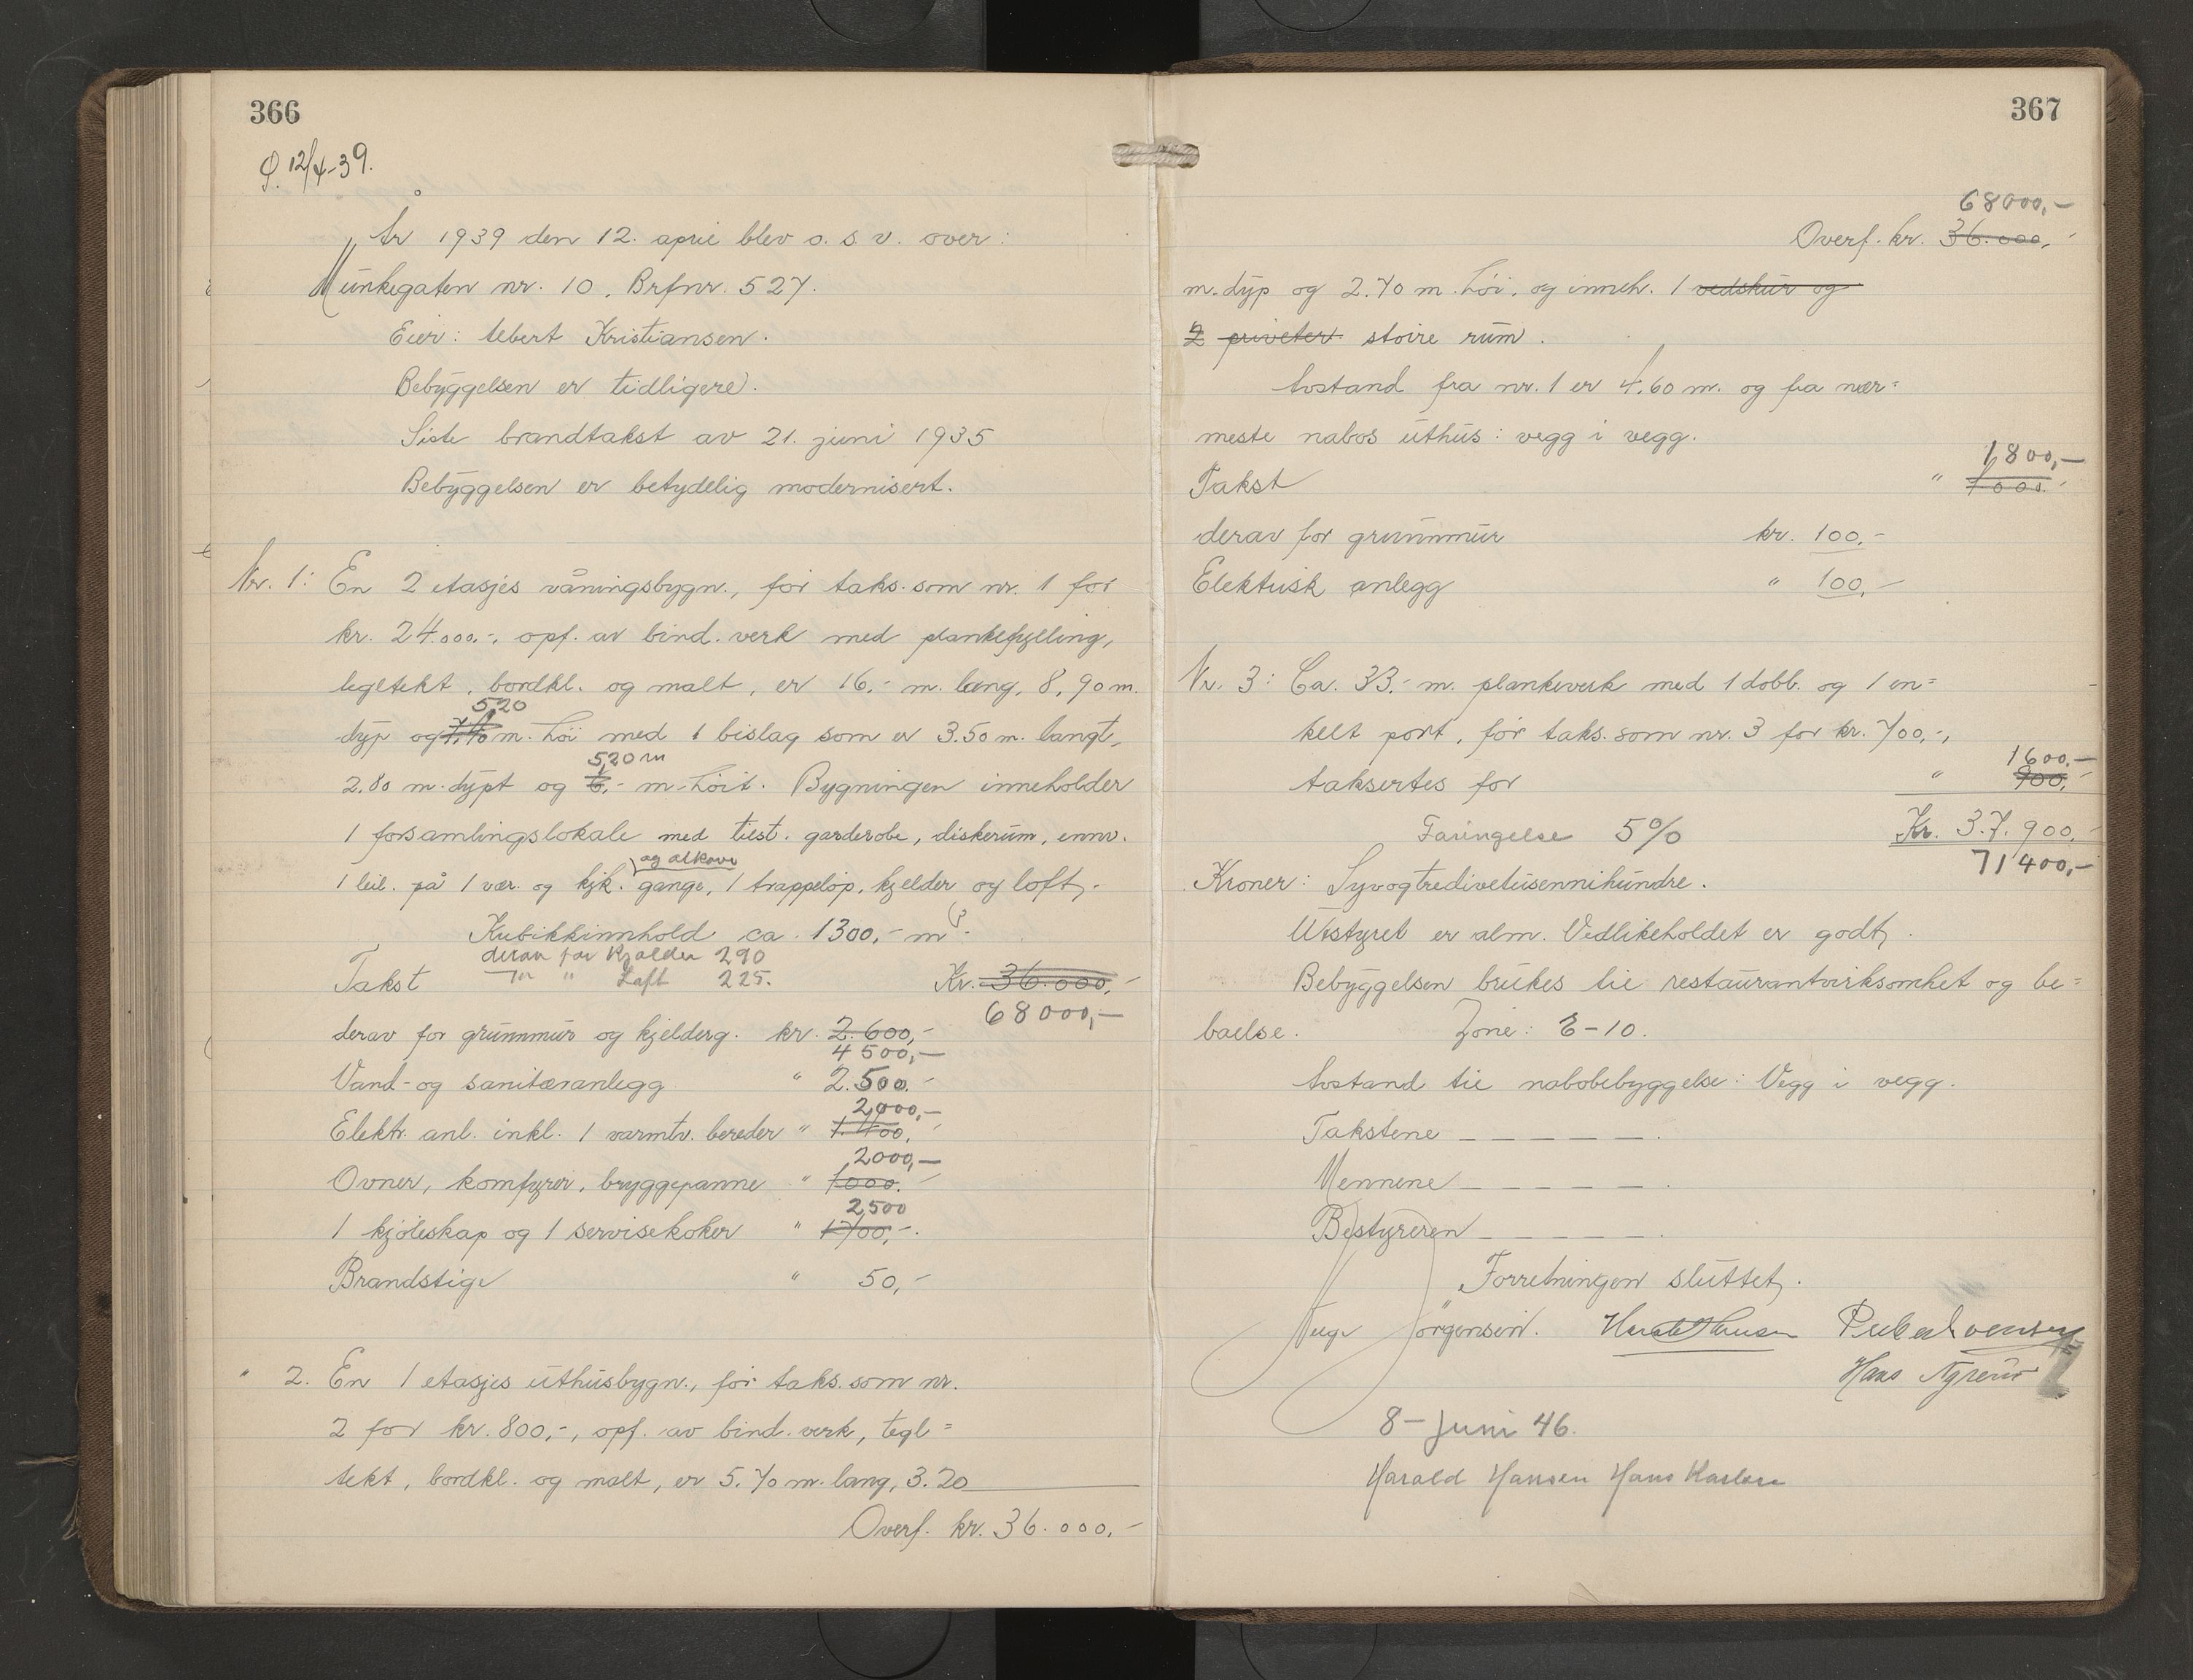 366
Ø. 12/4-39.
År 1939 den 12. april blev o. s. v. over:
Munkegaten nr. 10, Brfnr. 527.
Eier: Albert Kristiansen.
Bebyggelsen er tidligere.
Siste brandtakst av 21. juni 1935
Bebyggelsen er betydelig modernisert.
Nr. 1: En 2 etasjes våningsbygn., før taks. som nr. 1 for
kr. 24.000.-, opf. av bind. verk med plankefylling,
teglt​ekt, bordkl. og malt, er 16,- m. lang, 8,90 m.
5,20
dyp og 7.70 m. høi med 1 bislag som er 3.50 m. langt,
5,20 m
2.80 m. dypt og 6,- m. høit. Bygningen inneholder
1 forsamlingslokale med tilst. garderobe, diskerum, ennv.
og alkove
1 leil. på 1 vær. og kjk. gange, 1 trappeløp, kjelder og loft,.
Kubikkinnhold ca. 1300,- m³.
derav for Kjælder 290
Takst " Loft 225. Kr. 36.000,-
68000,-
derav for grunnmur og kjelderg. kr. 2.600,-
4500,-
Vand- og sanitæranlegg " 2.500.-
2000,-
Elektr. anl. inkl. 1 varmtv. bereder " 1.400,-
2000,-
Ovner, komfyrer, bryggepanne " 1000.-
2500
1 kjøleskap og 1 servisekoker " 1700,-.
Brandstige " 50,-
" 2. En 1 etasjes uthusbygn., før taks. som nr.
2 for kr. 800,-, opf. av bind. verk, tegl=
tekt, bordkl. og malt, er 5.70 m. lang, 3.20
Overf. kr. 36.000,-
367
68000,-
Overf. kr. 36.000,-
m. dyp og 2.70 m. høi, og inneh. 1 vedskur og
2 priveter. større rum.
Avstand fra nr. 1 er 4,60 m. og fra nær=
meste nabos uthus: vegg i vegg.
1800,-
Takst " 1000.-
derav for grunnmur kr. 100,-
Elektrisk anlegg " 100,-
Nr. 3: Ca. 33,- m. plankeverk med 1 dobb. og 1 en=
kelt port, før taks. som nr. 3 for kr. 700,-,
1600,-
taksertes for " 900,-
Faringelse 5% Kr. 37.900,-
71400,-
Kroner: Syvogtredivetusennihundre.
Utstyret er alm. Vedlikeholdet er godt,.
Bebyggelsen brukes til restaurantvirksomhet og be=
boelse. Zone: E-10.
Avstand til nabobebyggelse: Vegg i vegg.
Takstene _ _ _ _ _ _.
Mennene _ _ _ _ _ _.
Bestyreren _ _ _ _ _ _.
Forretningen sluttet,.
Aage Jörgensen. Harald Hansen
Hans Nyreno
8- Juni 46.
Harald Hansen Hans Karlsen